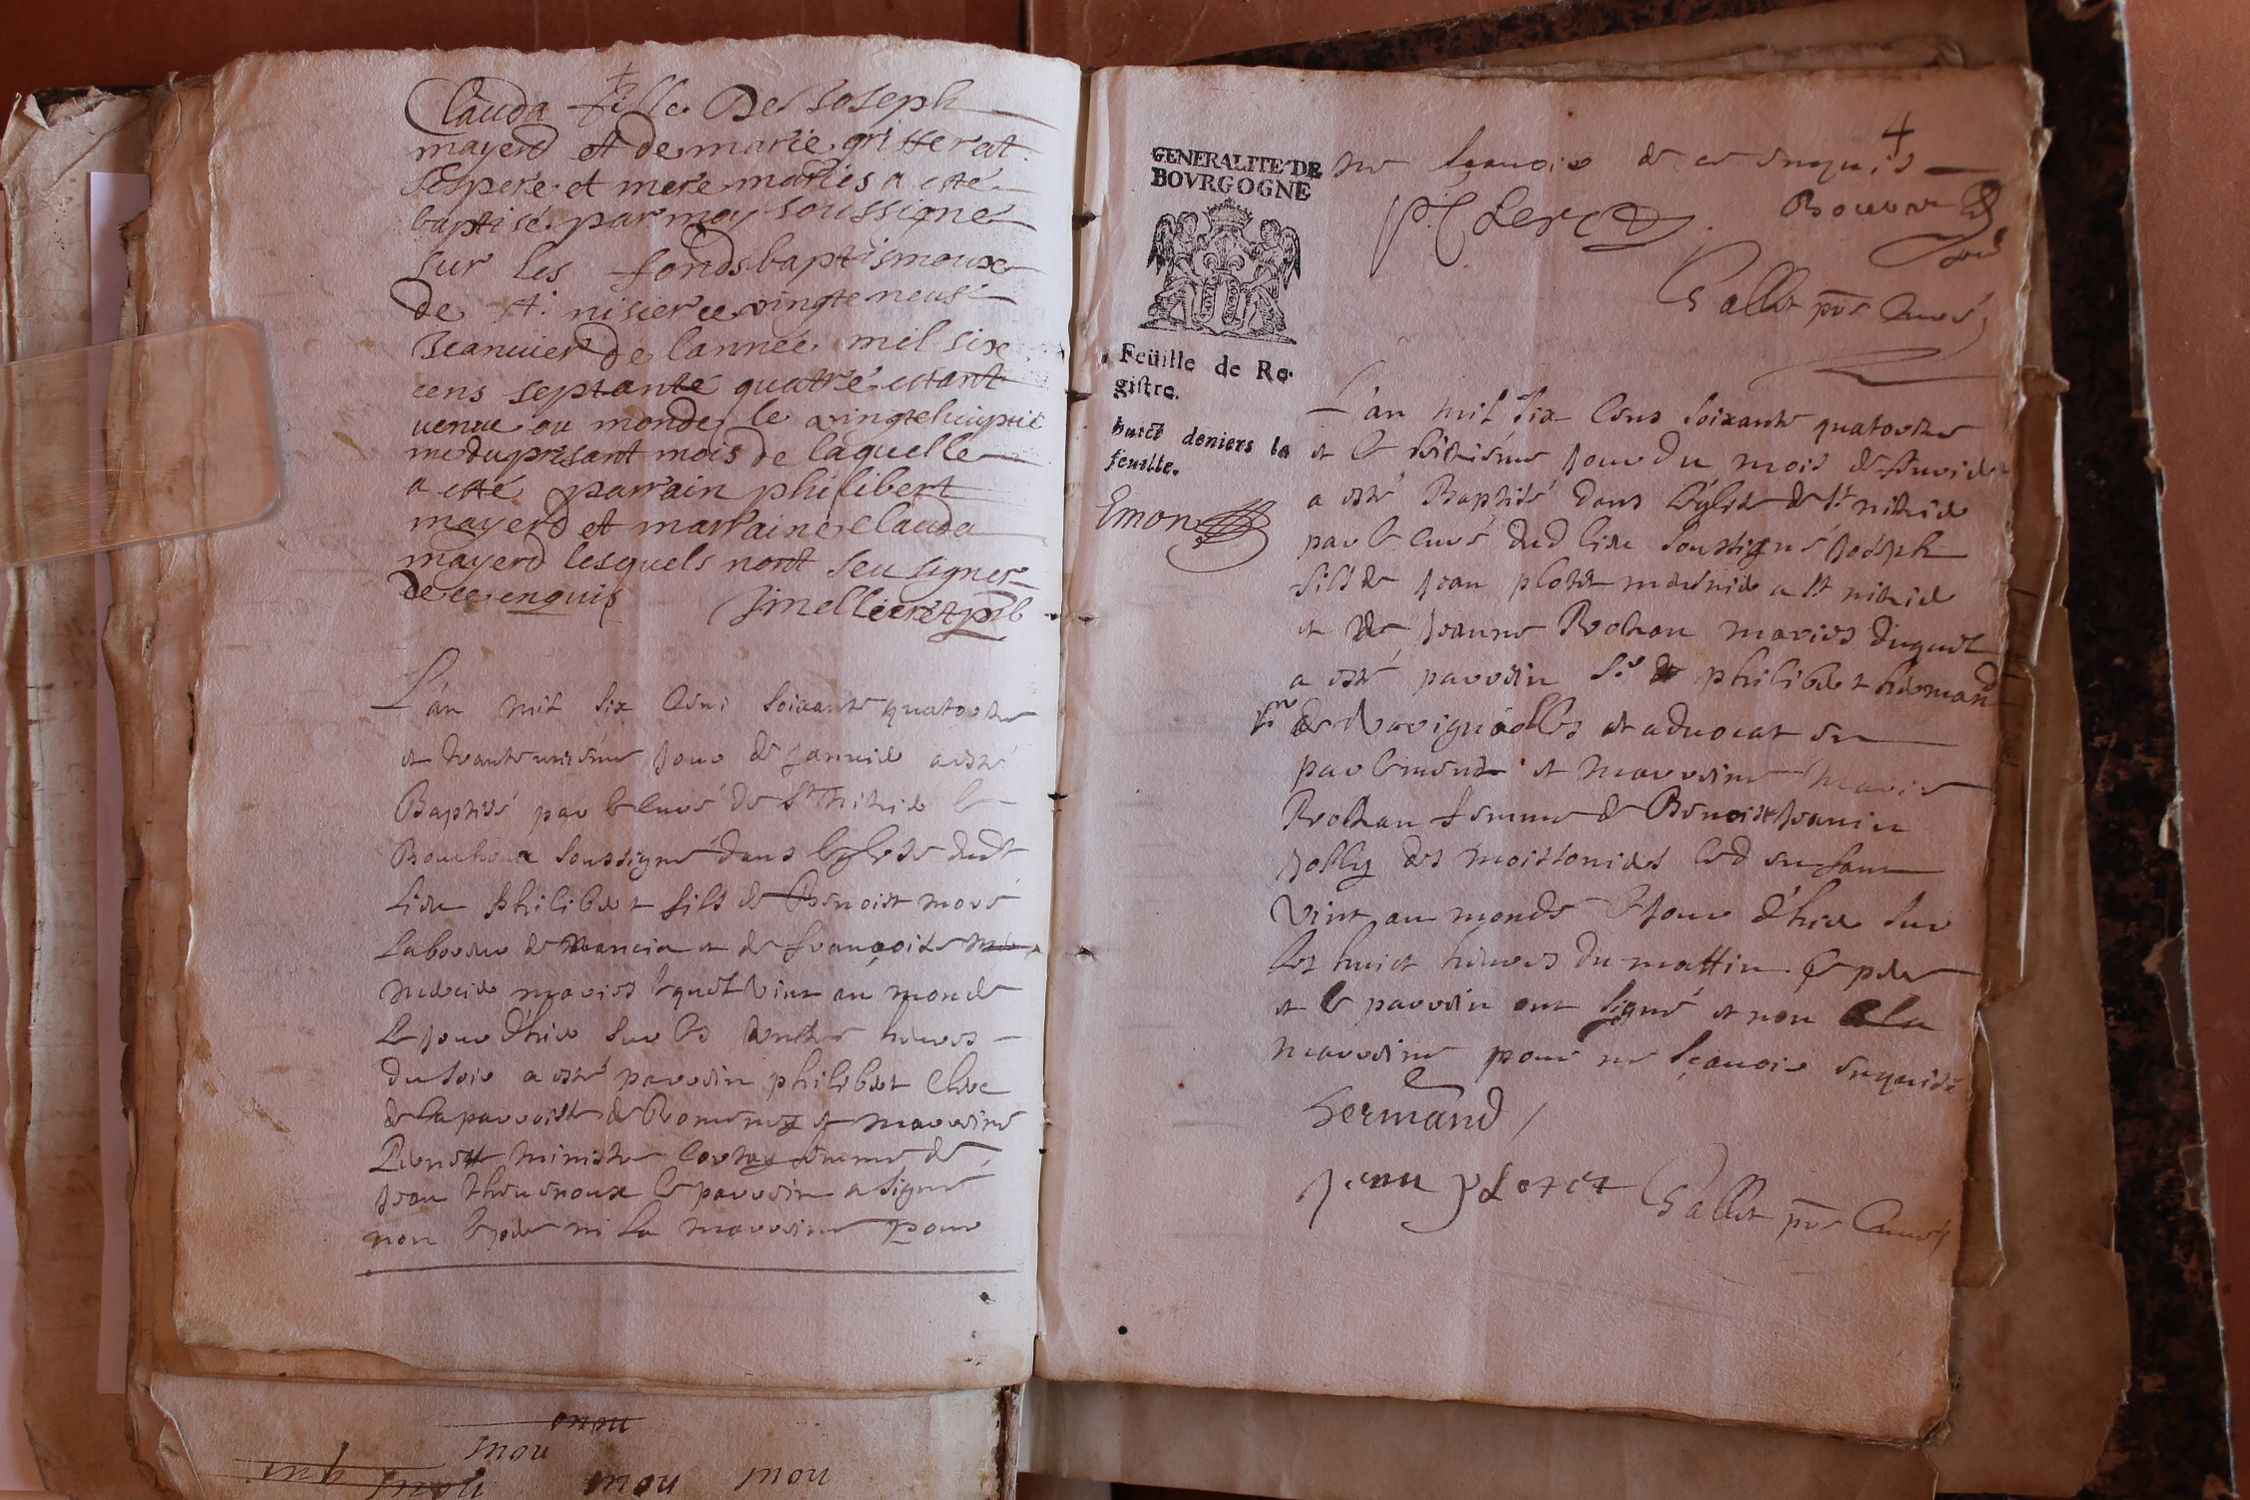 Clauda fille De Joseph
mayerd et de marie grisserat
ses pere et mere mariés a esté
baptisé par moy soussigné
sur les fonds baptismaux
de St. nisier ce vingte neuf
Jeanvier de lannée mil six
cens septante quattre estant
venue ou monde le vingtehuiptie
me du presant mois de laquelle
a esté parrain philibert
mayerd et marraine Clauda
mayerd lesquels nont seu signer
de ce enquis
L'an mil six Cens soixante quatorze
et trante uniesme jour de janvier a esté
Baptisé par le curé de St Nizier le
Bouchoux soussigné dans leglise dudt
lieu philibert fils de Benoist moré
laboureur de mancia et de françoise
mercier mariés lequel vint au monde
le jour d'hier sur les heures
du soir a esté parrain philibert Clerc
de la parroisse de et marraine
femme de
jean le parrain a signé
non le pere ni la marraine pour
4
ne sçavoir de ce enquis
P. Clerc
Gallet ptre Curé
GENERALITE DE
BOVRGOGNE
Feüille de Re-
gistre.
huict deniers la
feuille.
Emon
L'an mil six Cens soixante quatorze
et le jour du mois de fevrier
a esté Baptisé dans l'eglise de St nizier
par le curé dud lieu soussigné joseph
fils de jean ploset a St nizier
et de jeanne Rochan mariés duquel
a esté parrain Sr philibert hermand
Sr de et advocat en
parlement et marraine marie
Rochan femme de Benoist jeanin
jolly des led enfant
vint au monde le jour d'hier sur
les huict heures du mattin. le pere
et le parrain ont signé et non la
marraine pour ne sçavoir enquise
hermand
jean ploset Gallet ptre Curé
mou
mou
mou